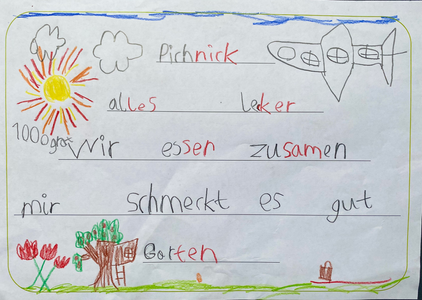 Pichnick
alles leker
1000 grat
Wir essen zusamen
mir schmeckt es gut
Garten